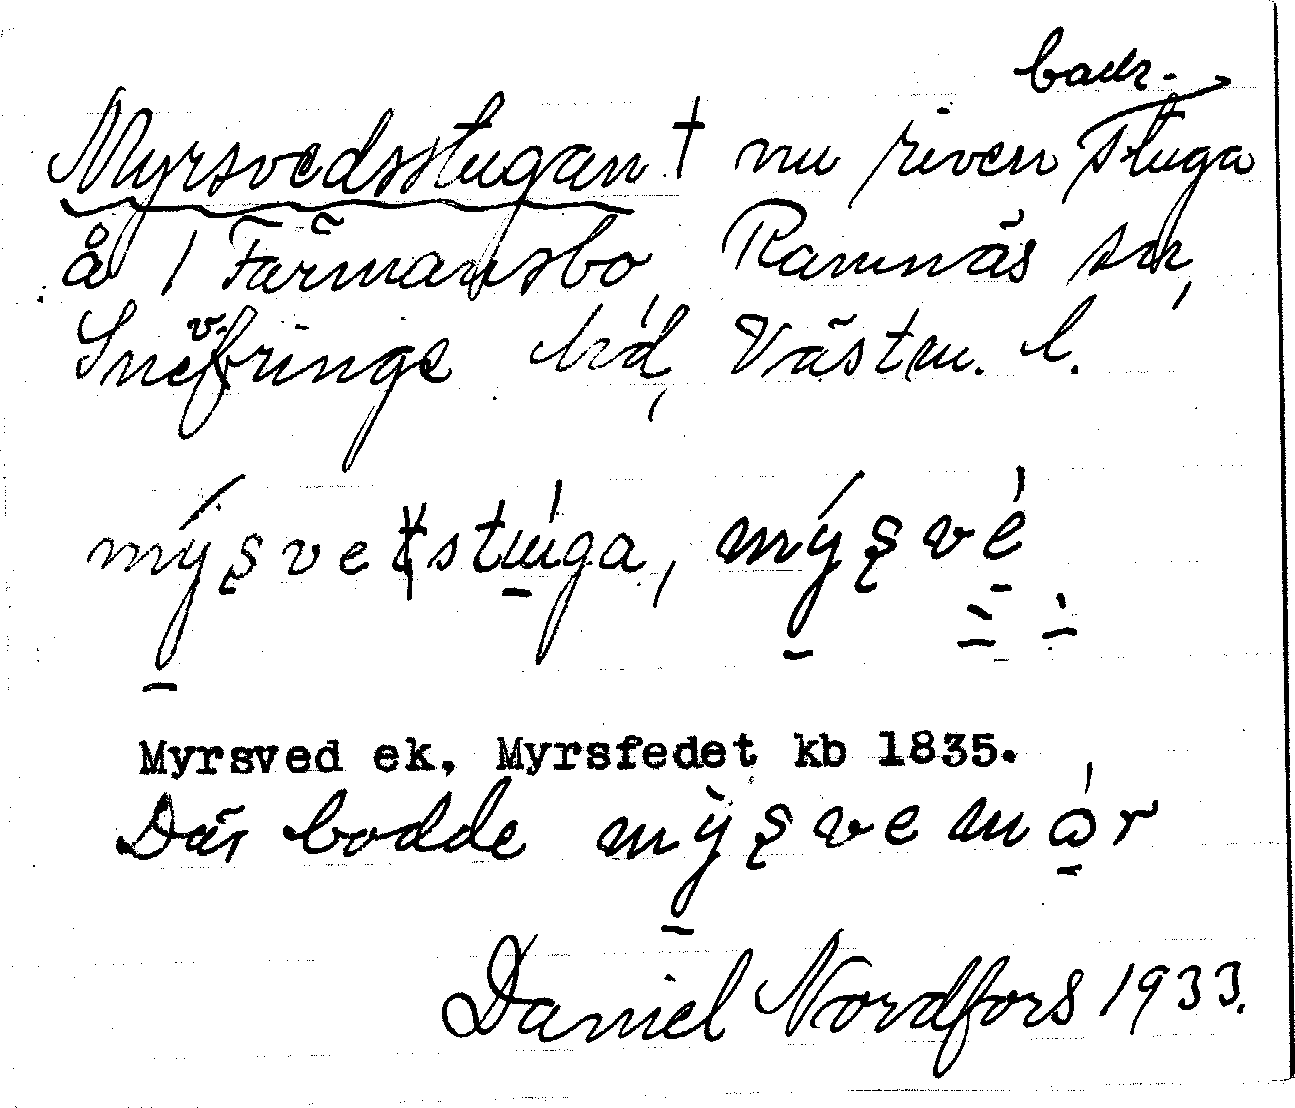 back-
Myrsvedsstugan † nu riven stuga
å 1 Färmansbo, Ramnäs sn,
Snevringe hd, Västm. l.
mýṣvetstúga, mýṣvé
Myrsved ek, Myrsfedet kb 1835.
Där bodde mỳṣvemór
Daniel Nordfors 1933.